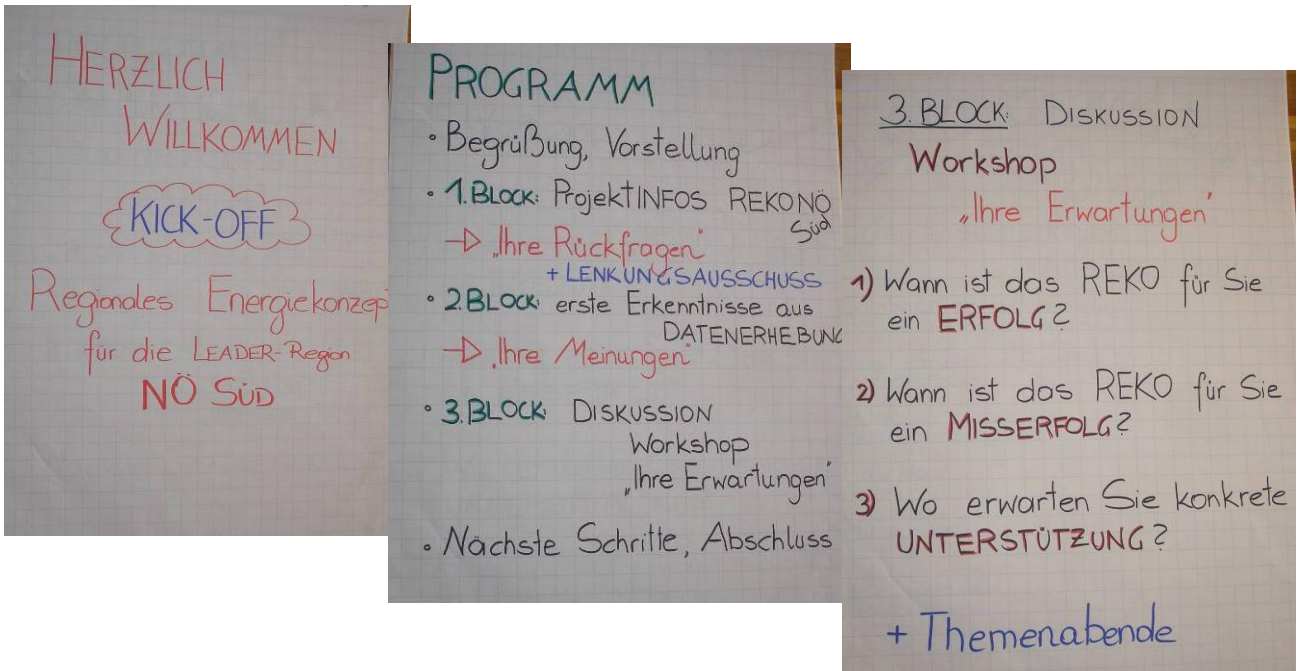 HERZLICH
WILLKOMMEN
KICK-OFF
Regionales Energiekonzep
für die LEADER-Region
NÖ SÜD
PROGRAMM
• Begrüßung, Vorstellung
• 1.BLOCK: ProjektINFOS REKO NÖ
Süd
→ „Ihre Rückfragen"
+ LENKUNGSAUSSCHUSS
• 2.BLOCK: erste Erkenntnisse aus
DATENERHEBUNG
→ „Ihre Meinungen"
• 3.BLOCK: DISKUSSION
Workshop
„Ihre Erwartungen"
• Nächste Schritte, Abschluss
3. BLOCK: DISKUSSION
Workshop
„Ihre Erwartungen"
1) Wann ist das REKO für Sie
ein ERFOLG?
2) Wann ist das REKO für Sie
ein MISSERFOLG?
3) Wo erwarten Sie konkrete
UNTERSTÜTZUNG?
+ Themenabende